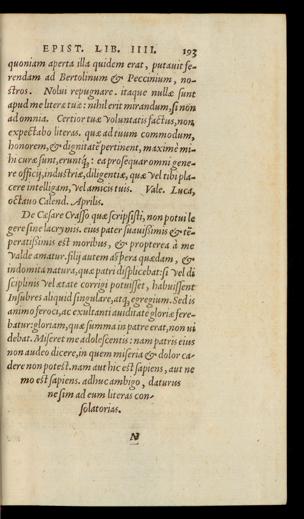 EPIST. LIB. IIII. 193
quoniam aperta illa quidem erat, putauit fe-
rendam ad Bertolinum & Peccinium, no-
stros. Nolui repugnare. itaque nullæ sunt
apud me literæ tuæ: nihil erit mirandum, si non
ad omnia. Certior tuæ voluntatis factus, non
expectabo literas. quæ ad tuum commodum,
honorem, & dignitatē pertinent, maximè mi-
hi curæ sunt, eruntq́; : ea prosequar omni gene-
re officij, industriæ, diligentiæ, quæ vel tibi pla-
cere intelligam, vel amicis tuis. Vale. Luca,
octauo Calend. Aprilis.
De Cæsare Crasso quæ scripsisti, non potui le
gere sine lacrymis. eius pater suauißimis & tē-
peratißimis est moribus, & propterea à me
valde amatur. filij autem aspera quædam, &
indomita natura, quæ patri displicebat: si vel di
sciplinis vel ætate corrigi potuisset, habuissent
Insubres aliquid singulare, atq; egregium. Sed is
animo feroci, ac exultanti auiditate gloriæ fere-
batur: gloriam, quæ summa in patre erat, non ui
debat. Miseret me adolescentis: nam patris eius
non audeo dicere, in quem miseria & dolor ca-
dere non potest. nam aut hic est sapiens, aut ne
mo est sapiens. adhuc ambigo, daturus
ne sim ad eum literas con-
solatorias.
N